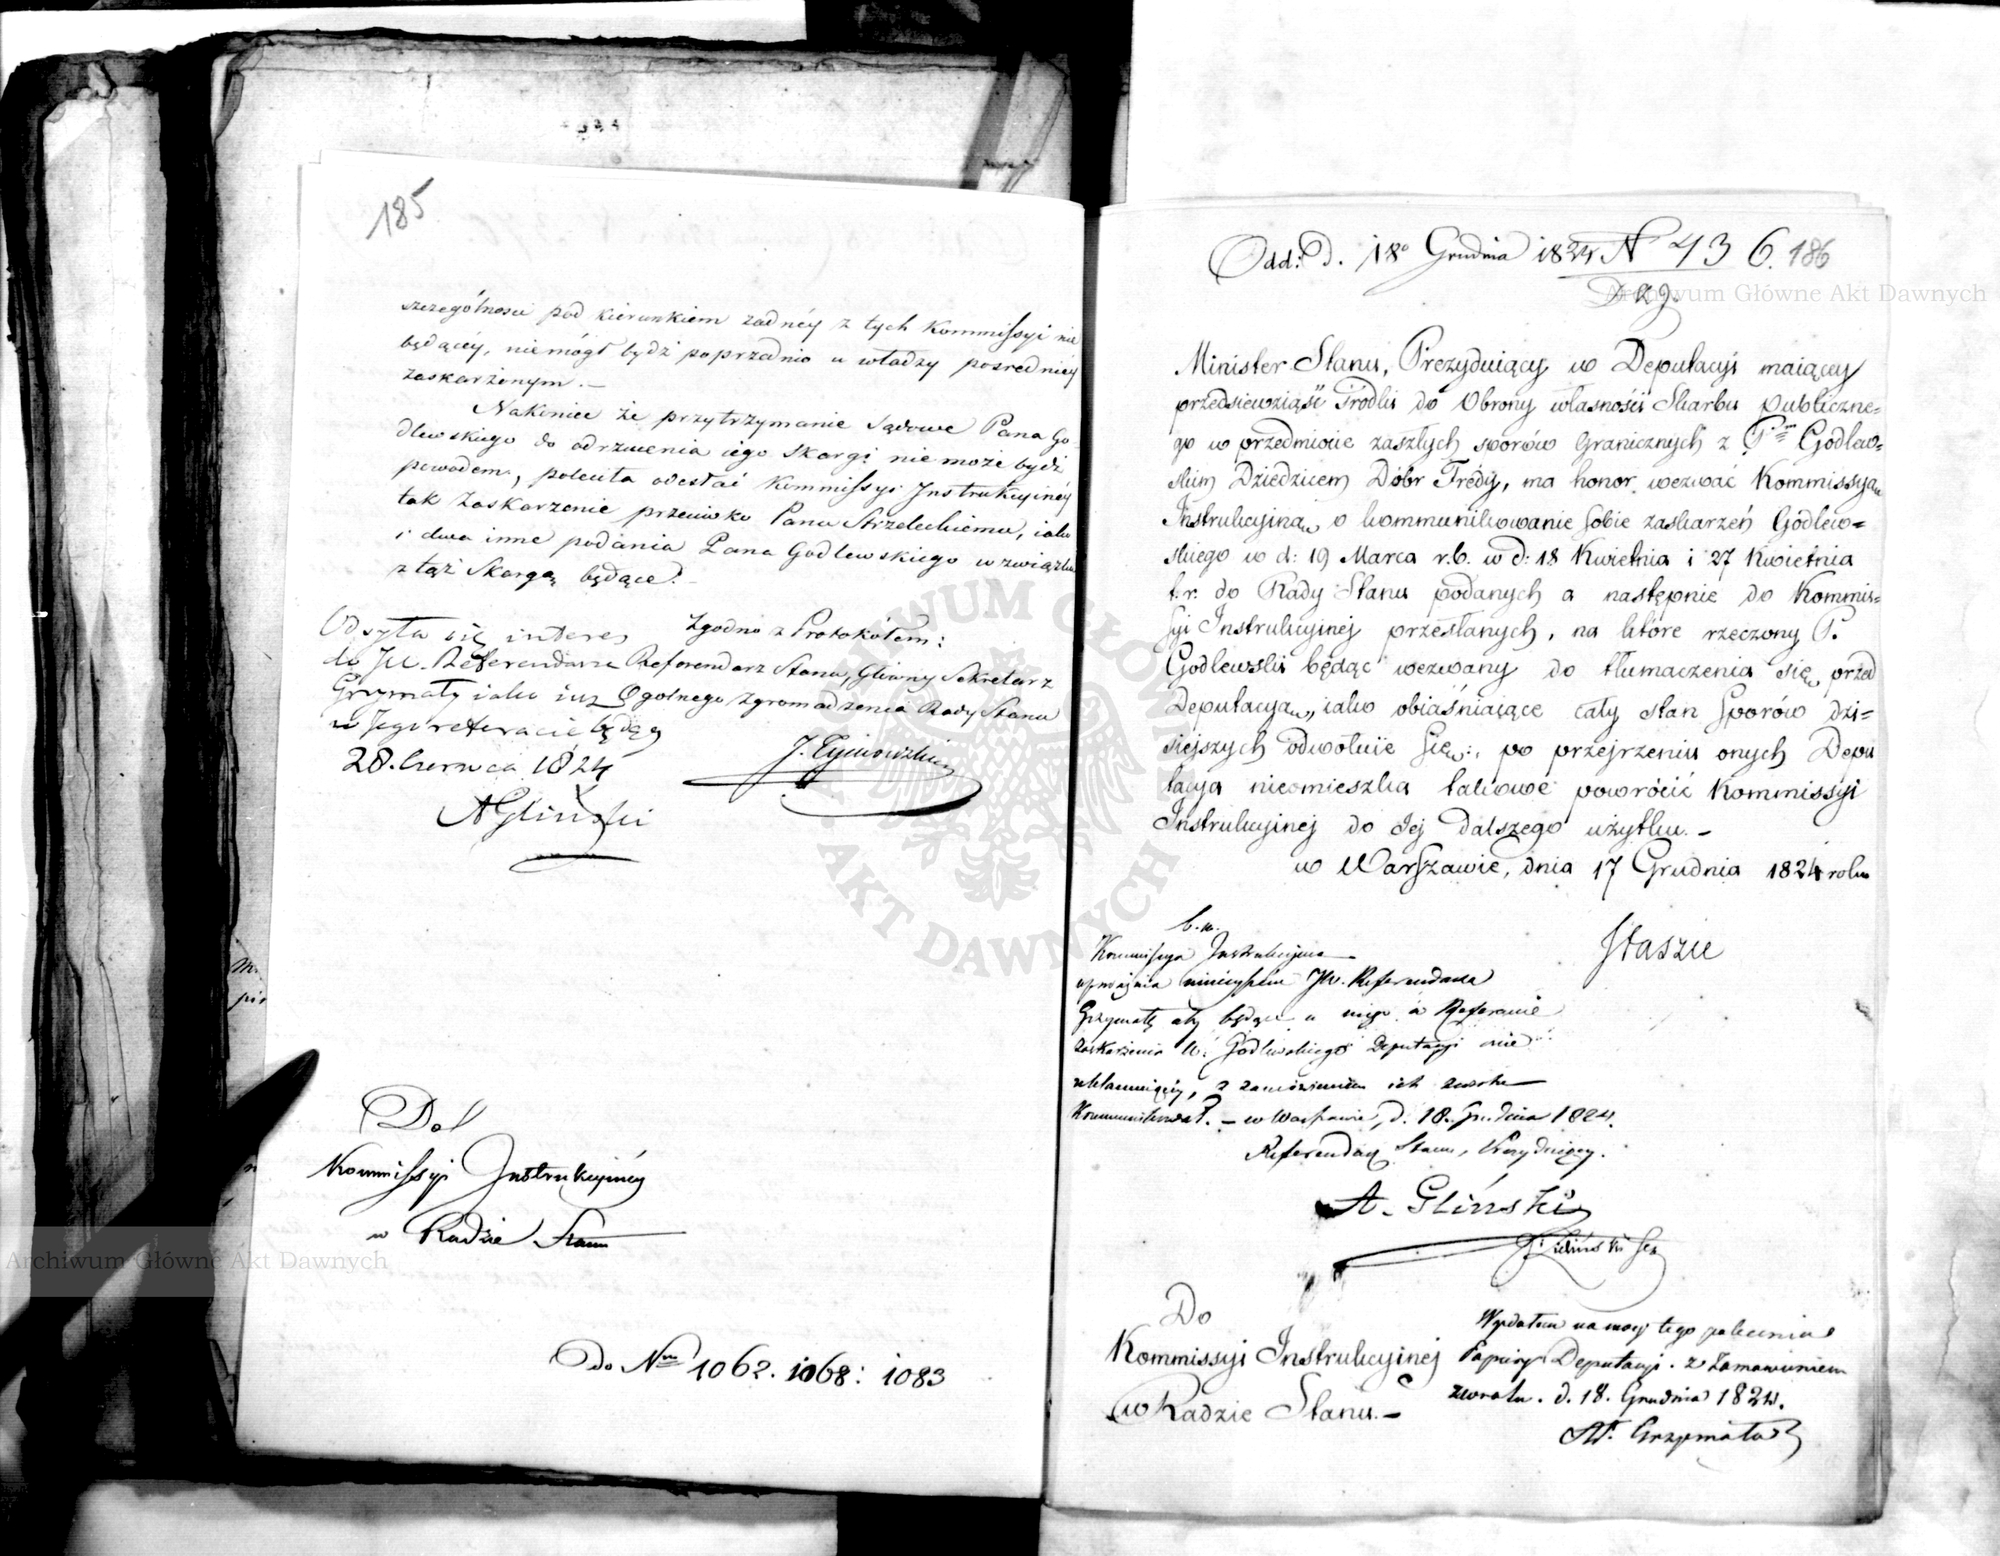 185
szczególności pod kierunkiem żadnéy z tych Kommissyi nie
będącéy, niemógł bydź poprzednio u władzy pośrednièy
zaskarżonym. —
Nakoniec że przytrzymanie Sądowe Pana Go-
dlewskiego do odrzucenia iego Skargi nie może bydź
powodem, poleciła odesłać Kommissyi Instrukcyinéy
tak Zaskarżenie przeciwko Panu Strzeleckiemu, iako
i dwa inne podania Pana Godlewskiego w związku
z tąż Skargą będące. —
Zgodno z Protokółem:
Referendarz Stanu, Główny Sekretarz
Ogólnego Zgromadzenia Rady Stanu
J. Tymowski
Odsyła się interes
do JW. Referendarza
Grzymały iako iuż
w Jego referacie będący
28. Czerwca 1824
AGliński
Do
Kommissyi Instrukcyinéy
w Radzie Stanu
Do Nrów 1062. 1068: 1083
Odd: d. 18° Grudnia 1824 N 436. 186
Minister Stanu, Prezyduiący w Deputacyi maiącey
przedsiewziąść Źródła do Obrony własności Skarbu publiczne=
go w przedmiocie zaszłych sporów Granicznych z Pm Godlew=
skim Dziedzicem Dóbr Trędy, ma honor wezwać Kommissyą
Instrukcyiną o kommunikowanie sobie zaskarżeń Godlew=
skiego w d: 19 Marca r.b. w d: 18 Kwietnia i 27 Kwietnia
t.r. do Rady Stanu podanych a następnie do Kommis=
syi Instrukcyinej przesłanych, na które rzeczony P.
Godlewski będąc wezwany do tłumaczenia się przed
Deputacyą, iako obiaśniaiące cały stan Sporów dzi=
sieyszych odwołuie się; po przejrzeniu onych Depu
tacya nieomieszka takowe powrócić Kommissyi
Instrukcyinej do Jej dalszego użytku. —
w Warszawie, dnia 17 Grudnia 1824 roku
Staszic
Kommissya Instrukcyina
upoważnia ninieyszém JW. Referendarza
Grzymałę aby będące u niego w Referacie
zaskarżenia W. Godlewskiego Deputacyi
z zamówieniem ich zwrotu
Kommunikował. — w Warszawie, d. 18. Grudnia 1824.
Referendarz Stanu, Prezyduiący.
A. Gliński
Do
Kommissyi Instrukcyinej
w Radzie Stanu. —
Wydałem na mocy tego polecenia
Papiery Deputacyi. z Zamówieniem
zwrotu. d. 18. Grudnia 1824.
Grzymała
Archiwum Główne Akt Dawnych
Archiwum Główne Akt Dawnych
ARCHIWUM GŁÓWNE AKT DAWNYCH